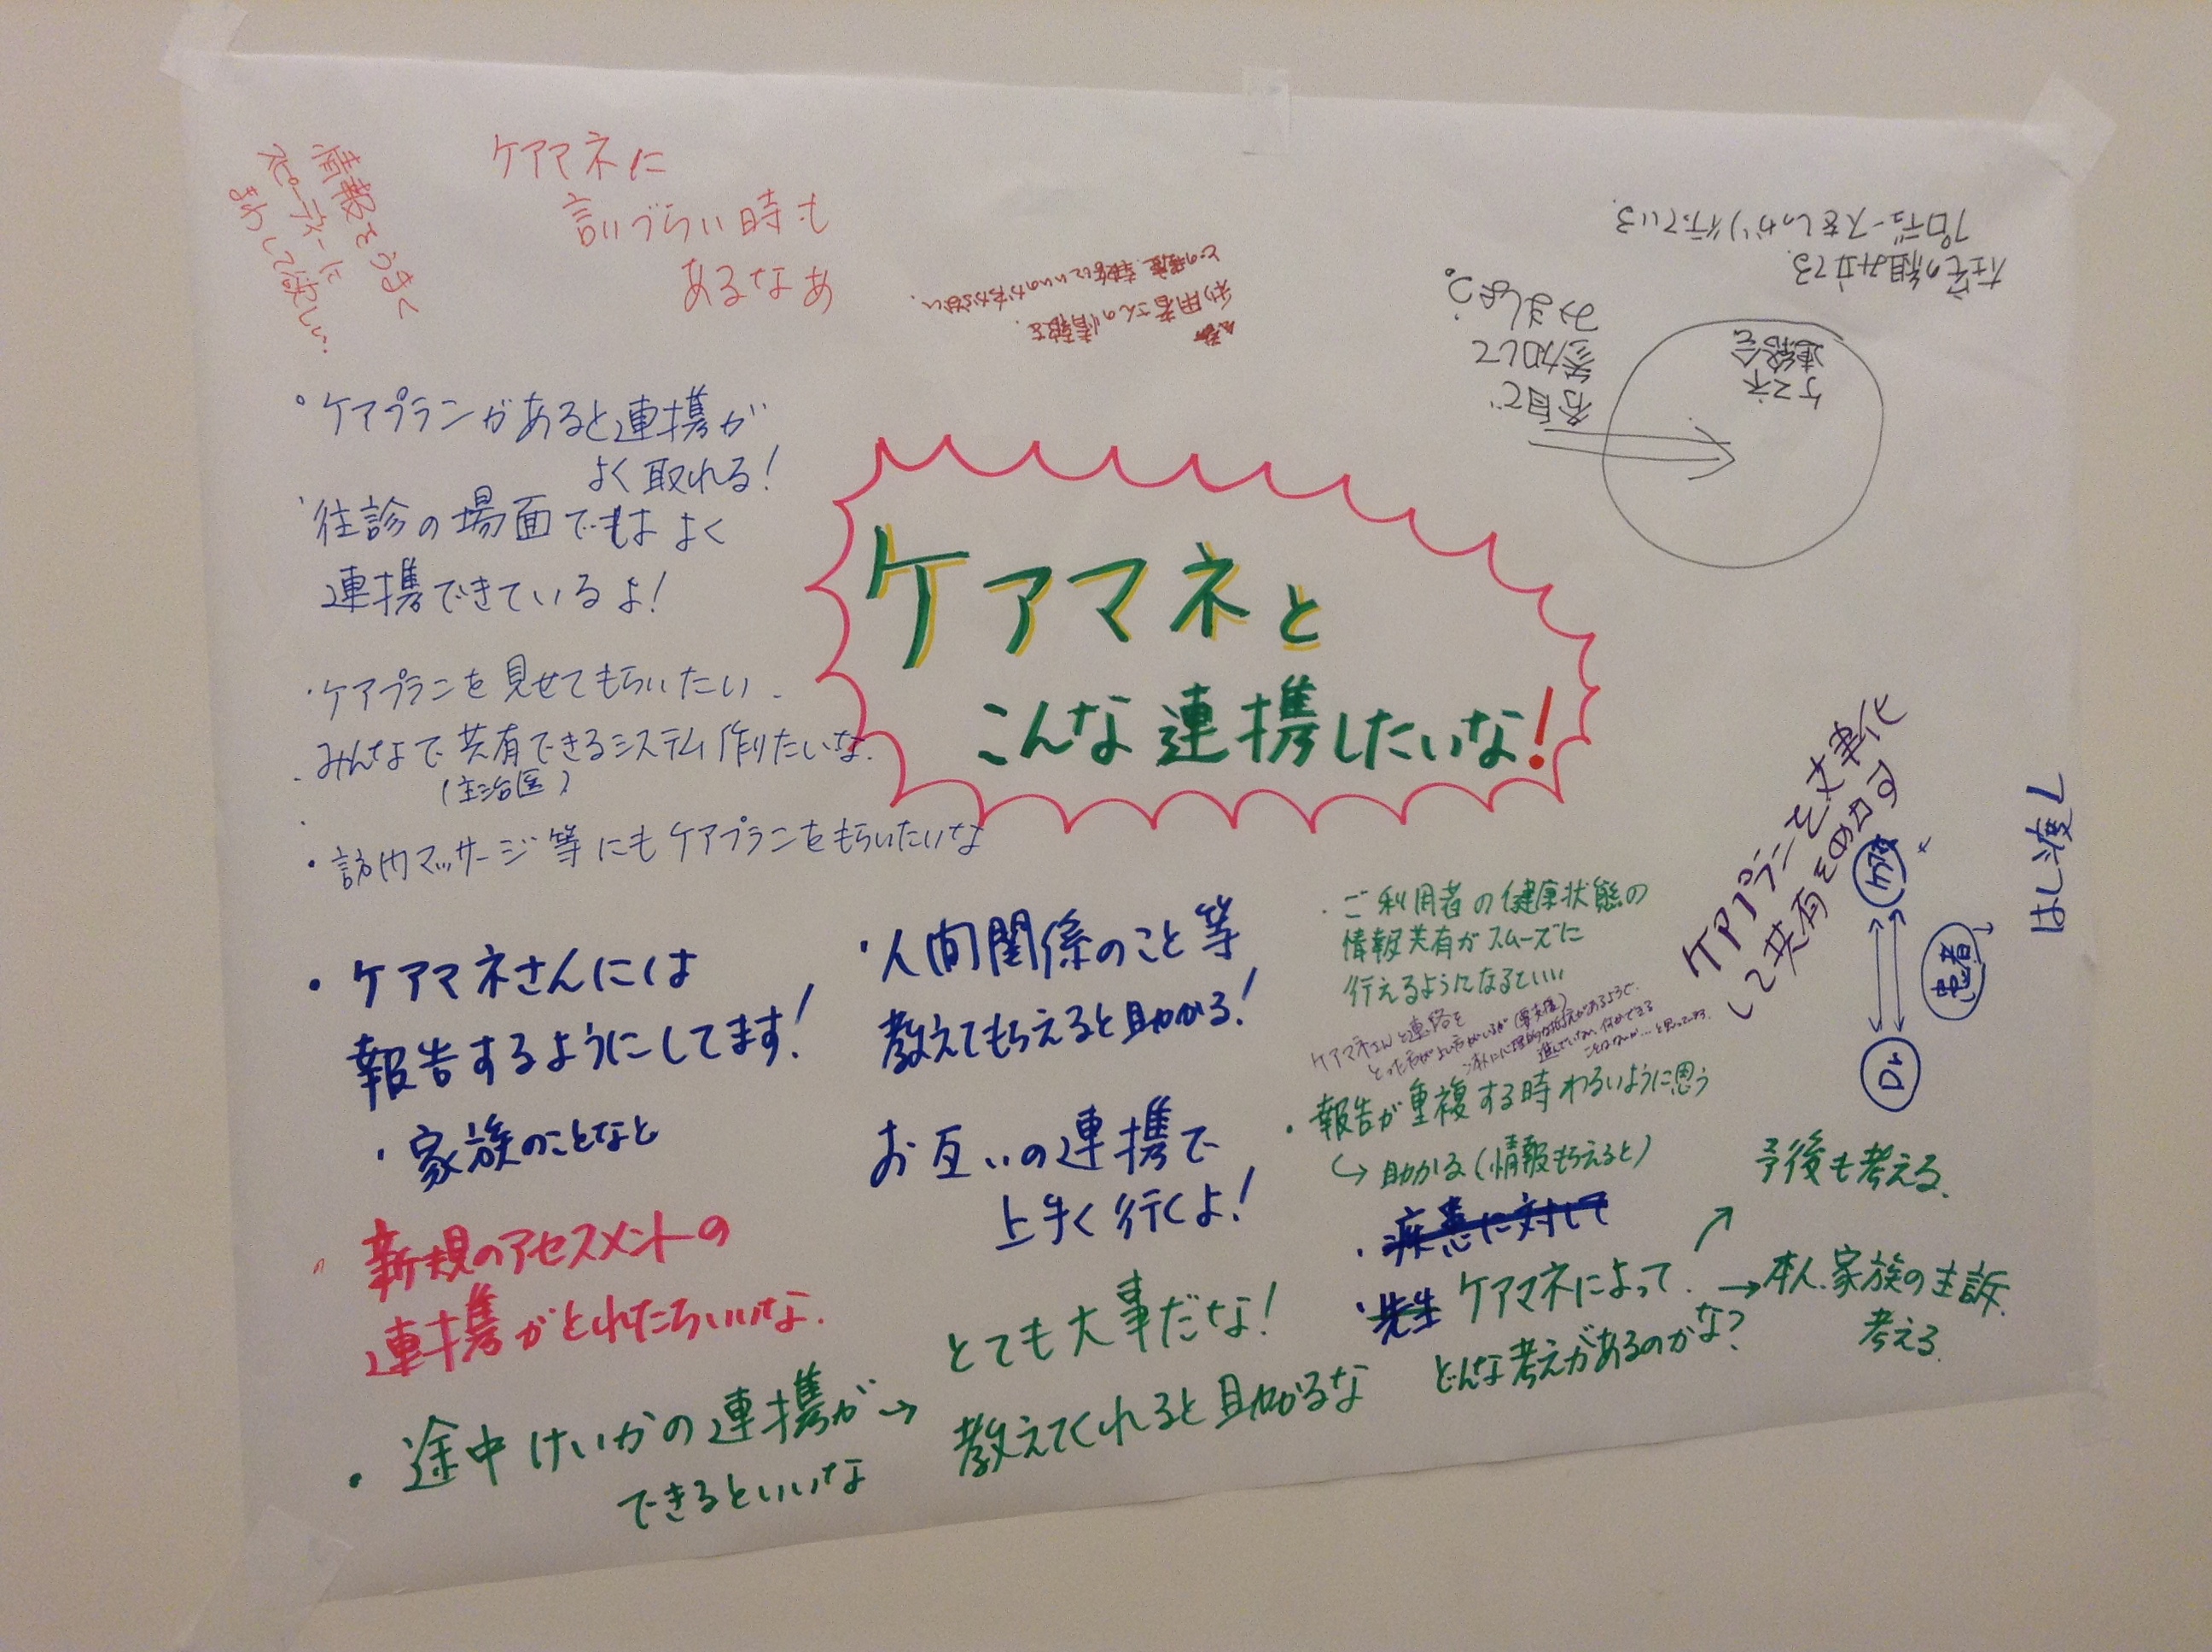 情報をうまく
スピーディーに
まわして欲しい.
ケアマネに
言いづらい時も
あるなあ
利用者さんの情報を.
どの程度、報告していいのか分からない.
在宅の組み立てる
プロデュースをしっかり行っている.
ケアマネ
連絡会
各自で
参加して
みましょう。
・ケアプランがあると連携が
よく取れる!
・往診の場面でもよく
連携できているよ!
・ケアプランを見せてもらいたい.
・みんなで共有できるシステム作りたいな.
(主治医)
・訪問マッサージ等にもケアプランをもらいたいな
ケアマネと
こんな連携したいな!
・ケアマネさんには
報告するようにしてます!
・家族のことなど
・人間関係のこと等
教えてもらえると助かる!
お互いの連携で
上手く行くよ!
・新規のアセスメントの
連携がとれたらいいな.
・途中けいかの連携が→
できるといいな
とても大事だな!
教えてくれると助かるな
・ご利用者の健康状態の
情報共有がスムーズに
行えるようになるといい
ケアマネさんと連絡を
とった方がよい方がいるが
・報告が重複する時わるいように思う
↳助かる(情報もらえると)
・疾患に対して
・先生 ケアマネによって
どんな考えがあるのかな?
予後も考える.
→本人.家族の主訴.
考える.
ケアプランを文章化
して共有をめざす
患者
Dr
はし渡し